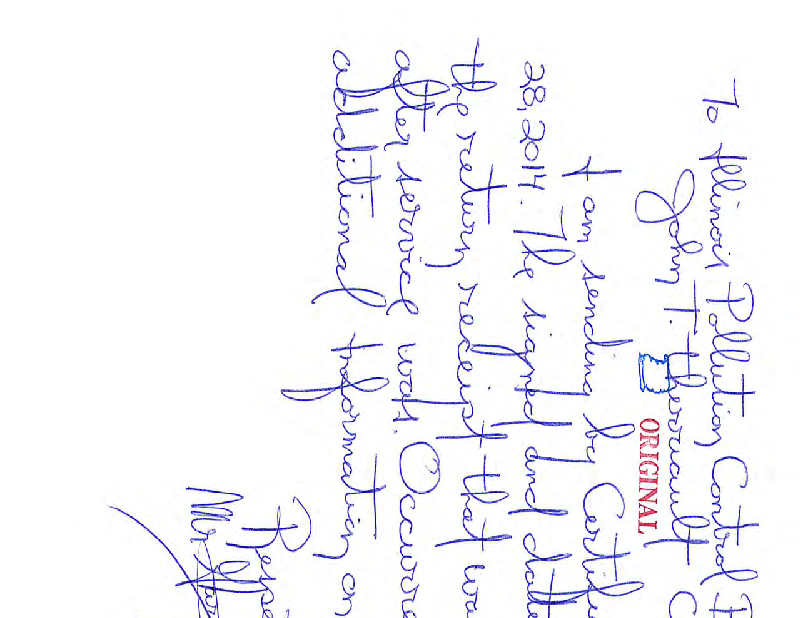 To Illinois Pollution Control
John T. Therriault
ORIGINAL
I am sending by Certif
28, 2014. The signed and date
the return receipt that wa
after service was. Occurr
additional information on
Resp
Mr.